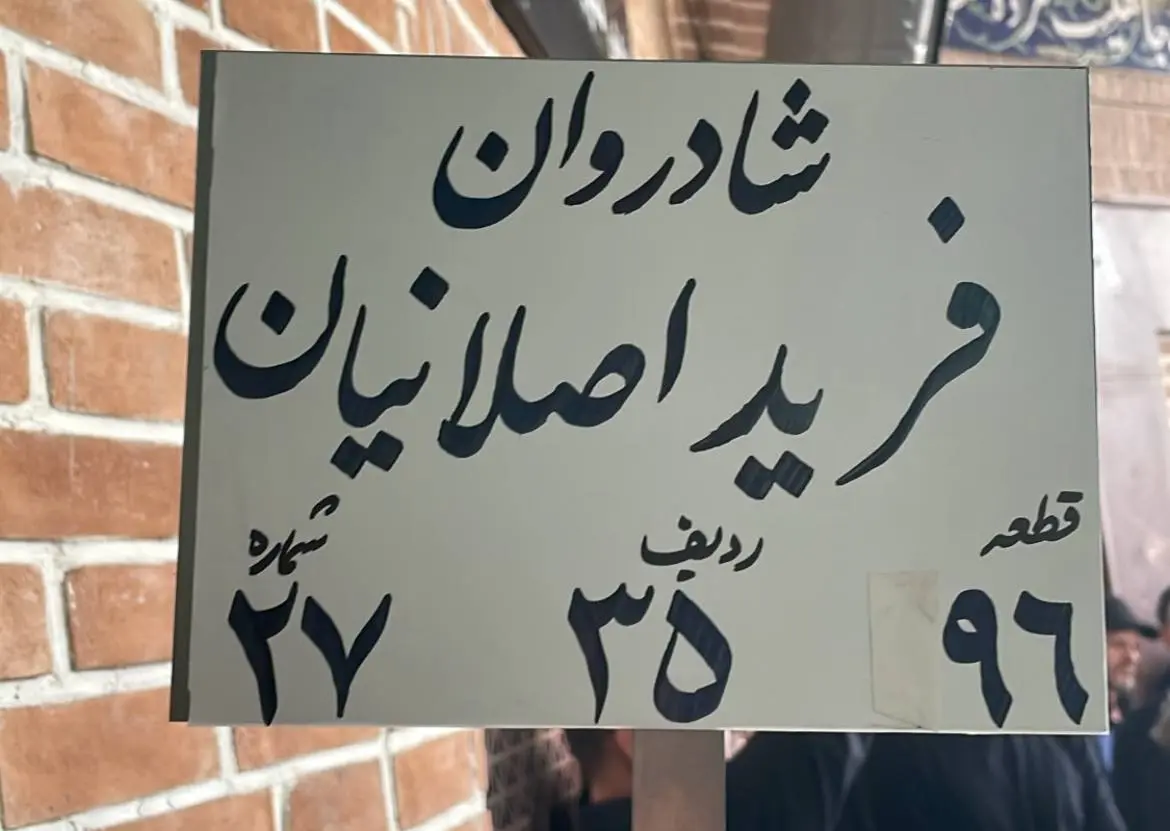 شادروان
فرید اصلانیان
قطعه ردیف شماره
۹۶ ۳۵ ۲۷